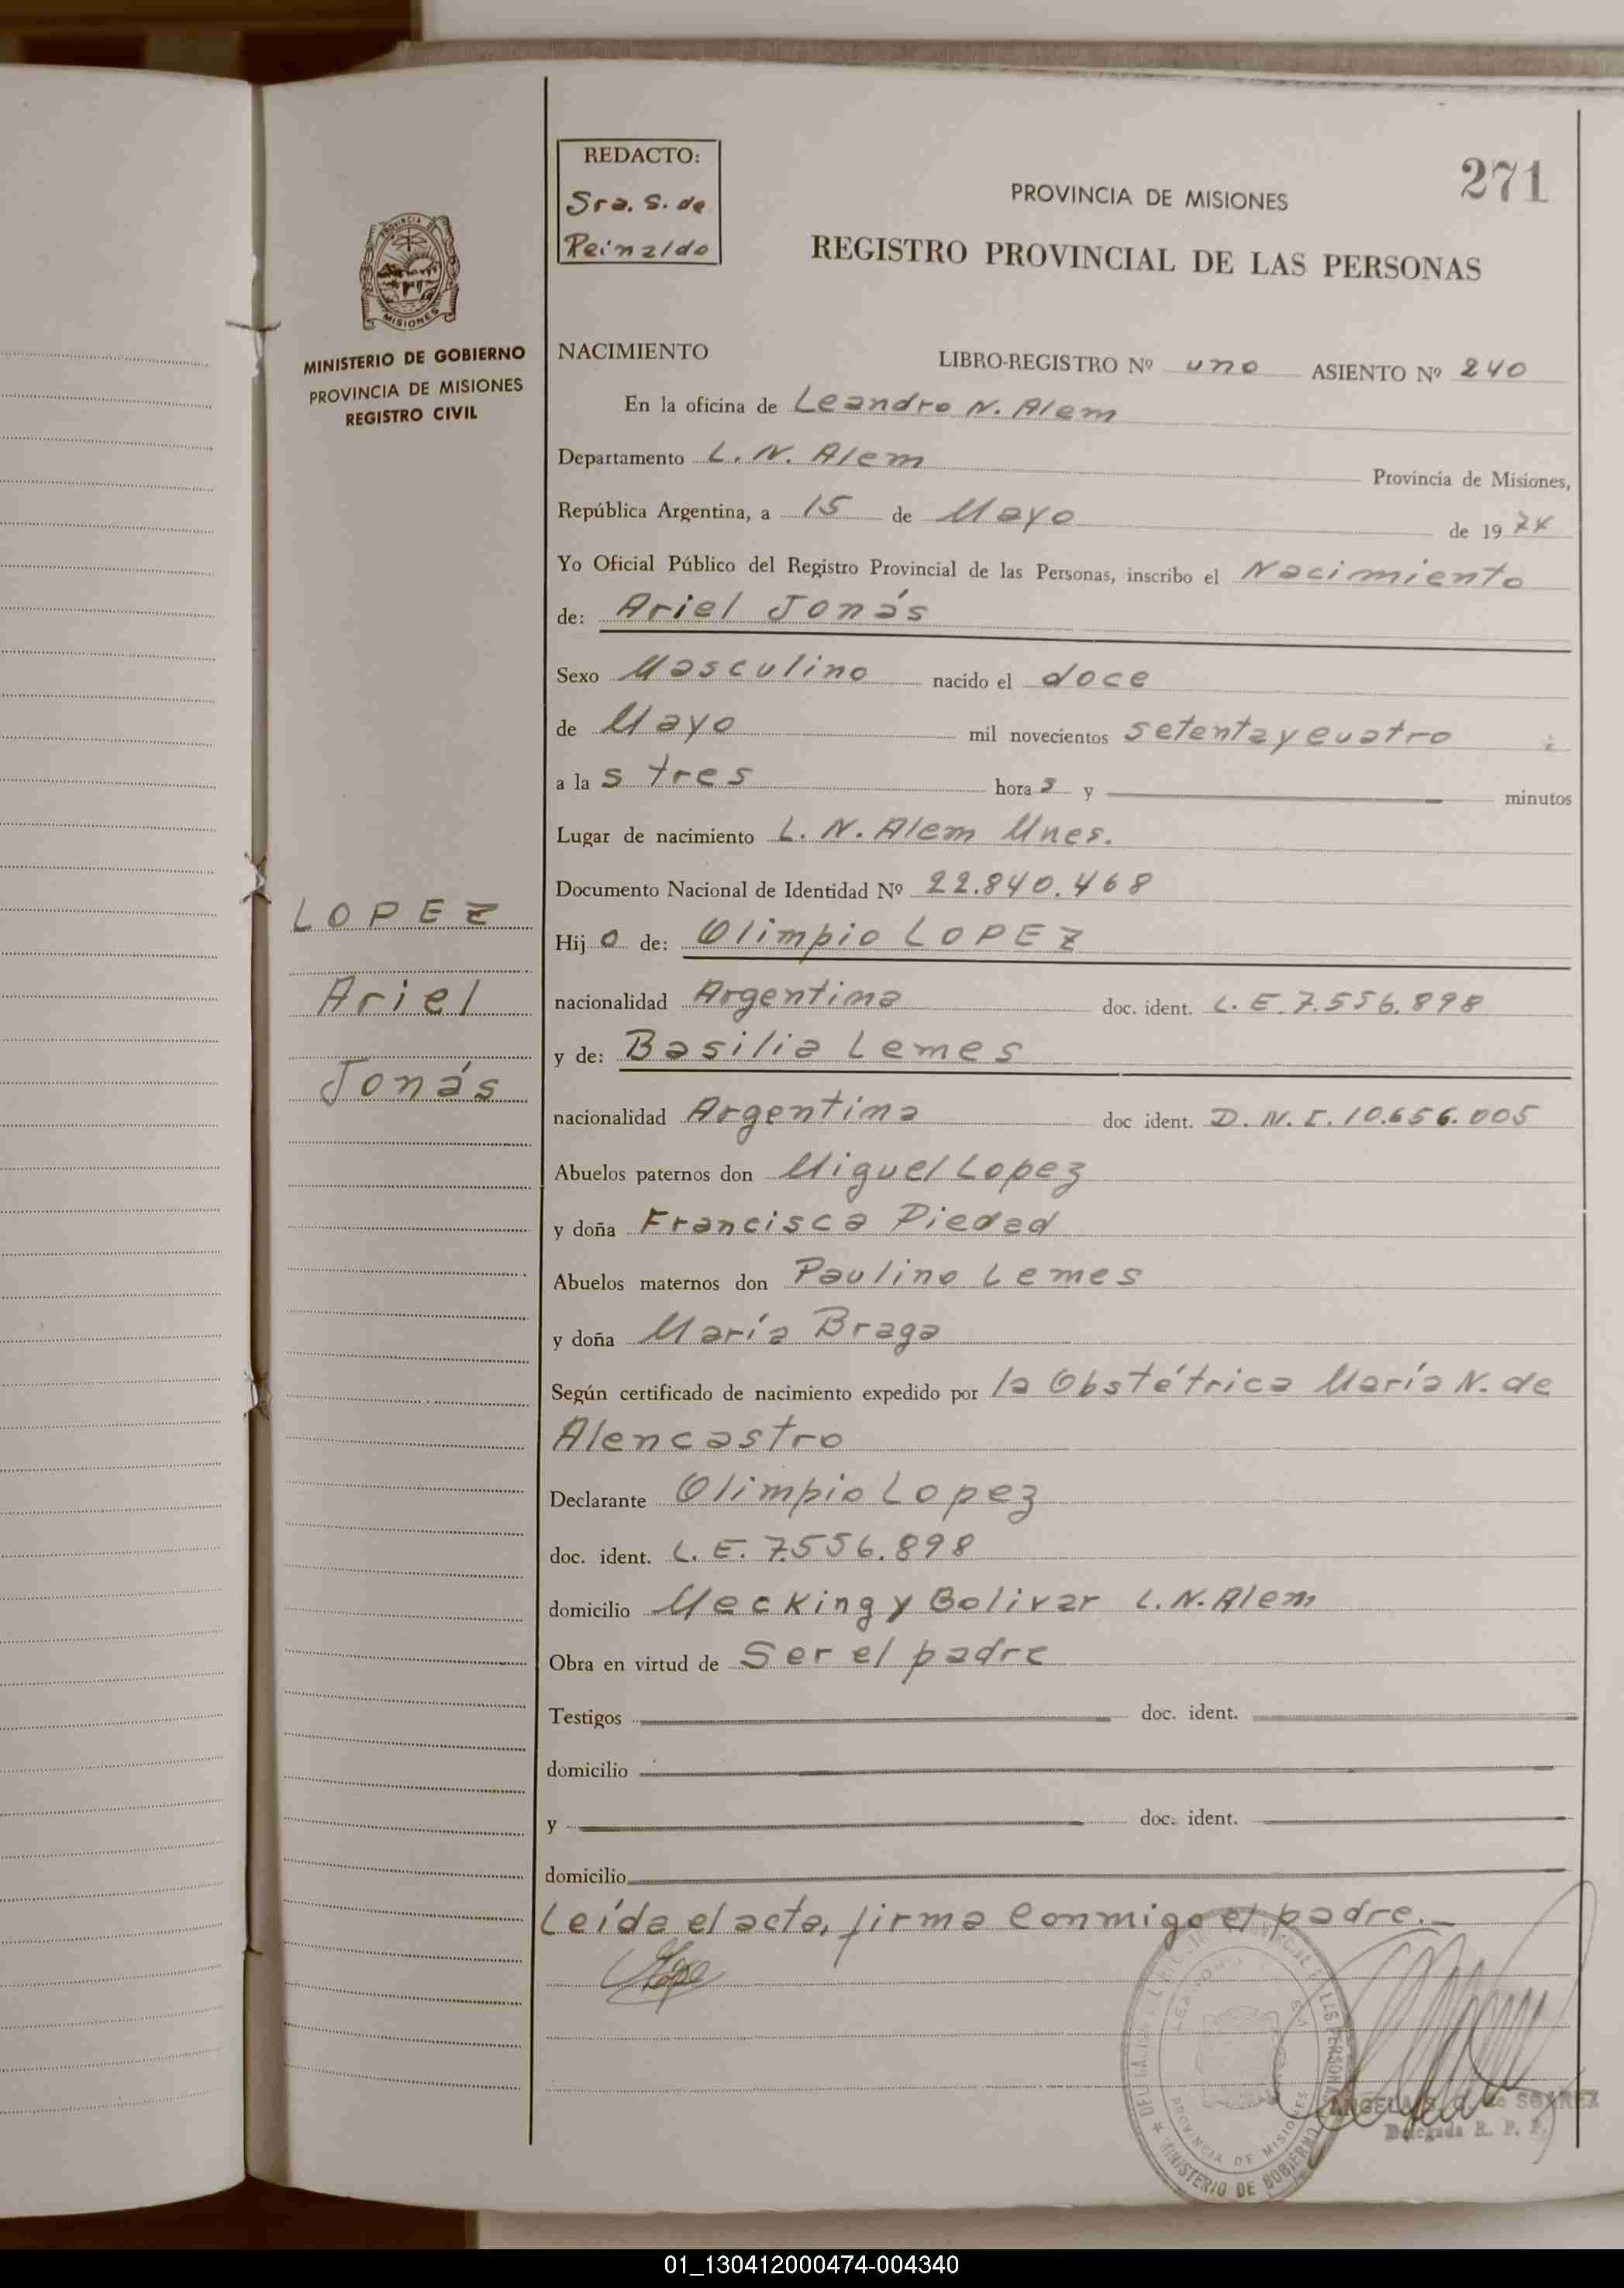 REDACTO:
Sra. S. de
Reinaldo
271
PROVINCIA DE MISIONES
REGISTRO PROVINCIAL DE LAS PERSONAS
MISIONES
MINISTERIO DE GOBIERNO
PROVINCIA DE MISIONES
REGISTRO CIVIL
NACIMIENTO LIBRO-REGISTRO Nº uno ASIENTO Nº 240
En la oficina de Leandro N. Alem
Departamento L. N. Alem Provincia de Misiones,
República Argentina, a 15 de Mayo de 1974
Yo Oficial Público del Registro Provincial de las Personas, inscribo el Nacimiento
de: Ariel Jonás
Sexo Masculino nacido el doce
de Mayo mil novecientos setenta y cuatro
a la s tres hora s y minutos
Lugar de nacimiento L. N. Alem Mnes.
Documento Nacional de Identidad Nº 22.840.468
LOPEZ
Ariel
Jonás
Hij o de: Olimpio LOPEZ
nacionalidad Argentina doc. ident. L. E. 7.556.898
y de: Basilia Lemes
nacionalidad Argentina doc ident. D. N. I. 10.656.005
Abuelos paternos don Miguel Lopez
y doña Francisca Piedad
Abuelos maternos don Paulino Lemes
y doña María Braga
Según certificado de nacimiento expedido por la Obstétrica María N. de
Alencastro
Declarante Olimpio Lopez
doc. ident. L. E. 7.556.898
domicilio Mecking y Bolivar L. N. Alem
Obra en virtud de Ser el padre
Testigos doc. ident.
domicilio
y doc. ident.
domicilio
Leída el acta, firma conmigo el padre.
PROVINCIA DE MISIONES
MINISTERIO DE GOBIERNO
ANGELA S. de SOAREZ
Delegada R. P. P.
01_130412000474-004340